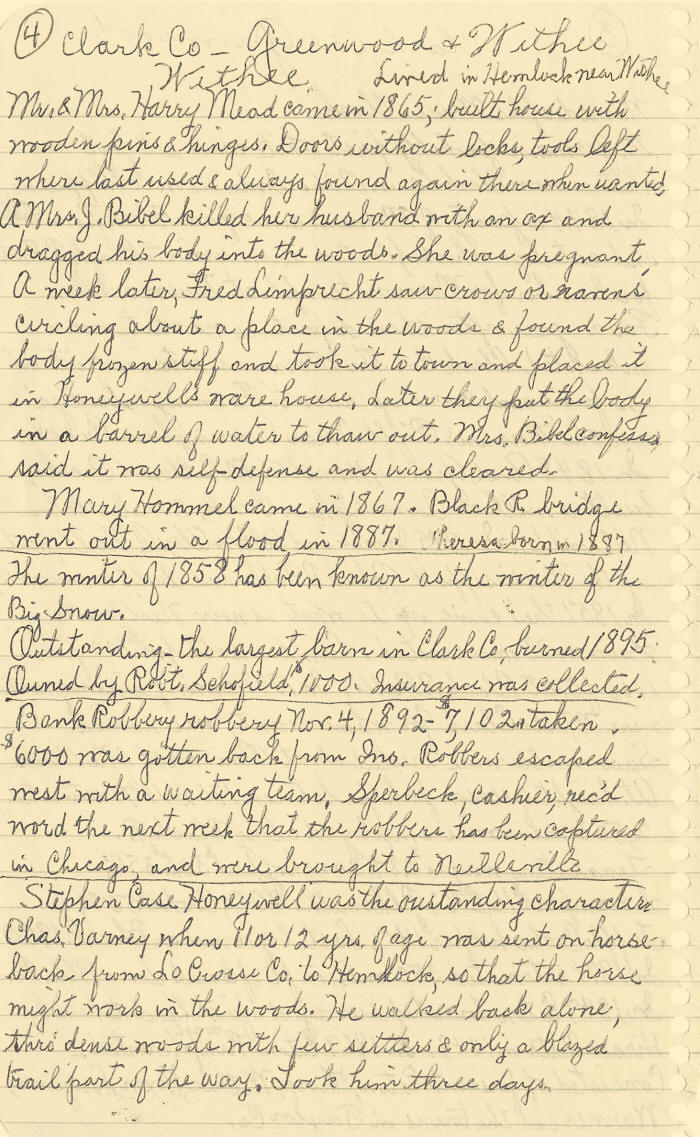 4 Clark Co - Greenwood & Withee
Withee Lived in Hemlock near Withee
Mr. & Mrs. Harry Mead came in 1865, built house with
wooden pins & hinges. Doors without locks, tools left
where last used & always found again there when wanted.
A Mrs. J. Bibel killed her husband with an ax and
dragged his body into the woods. She was pregnant,
A week later, Fred Limprecht saw crows or ravens
circling about a place in the woods & found the
body frozen stiff and took it to town and placed it
in Honeywell's ware house. Later they put the body
in a barrel of water to thaw out. Mrs. Bibel confess,
said it was self-defense and was cleared.
Mary Hommel came in 1867. Black R. bridge
went out in a flood in 1887. Theresa born in 1887
The winter of 1858 has been known as the winter of the
Big Snow.
Outstanding - the largest barn in Clark Co, burned 1895.
Owned by Robt. Schofield, $1000. Insurance was collected.
Bank Robbery robbery Nov. 4, 1892 - $7,102 taken.
$6000 was gotten back from Ins. Robbers escaped
west with a waiting team. Sperbeck, cashier, rec'd
word the next week that the robbers has been captured
in Chicago, and were brought to Neillsville
Stephen Case Honeywell was the oustanding character
Chas. Varney when 11 or 12 yrs. of age was sent on horse-
back from La Crosse Co. to Hemlock, so that the horse
might work in the woods. He walked back alone,
thro' dense woods with few settlers & only a blazed
trail part of the way. Took him three days.